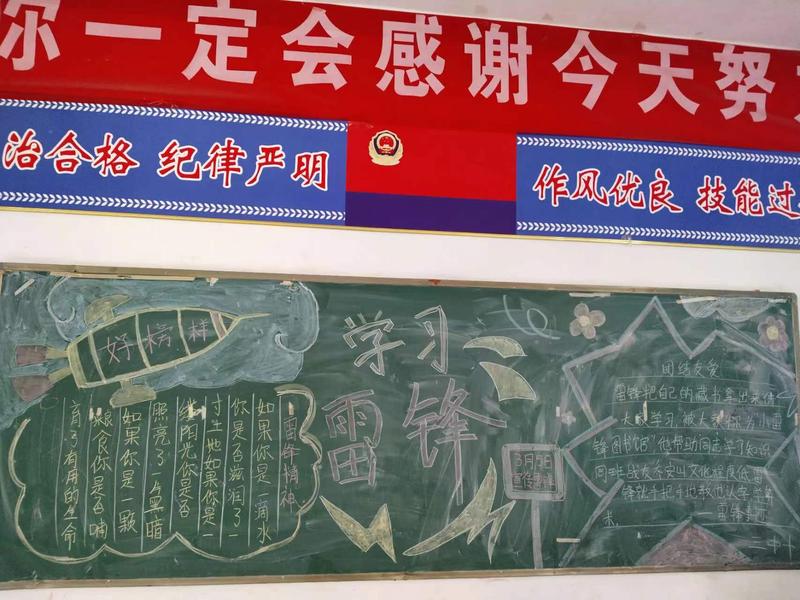 你一定会感谢今天努
治合格 纪律严明
作风优良 技能过
好榜样
学习
雷锋
雷锋精神
如果你是一滴水
你是否滋润了一
寸土地如果你是一
缕阳光你是否
照亮了黑暗
如果你是一颗
粮食你是否哺
育了有用的生命
3月5日
团结友爱
雷锋把自己的藏书拿出来供
大家学习,被大家称为“小雷
锋图书馆”他帮助同志学习知识
同班战友乔安山文化程度低雷
锋就手把手地教他认字